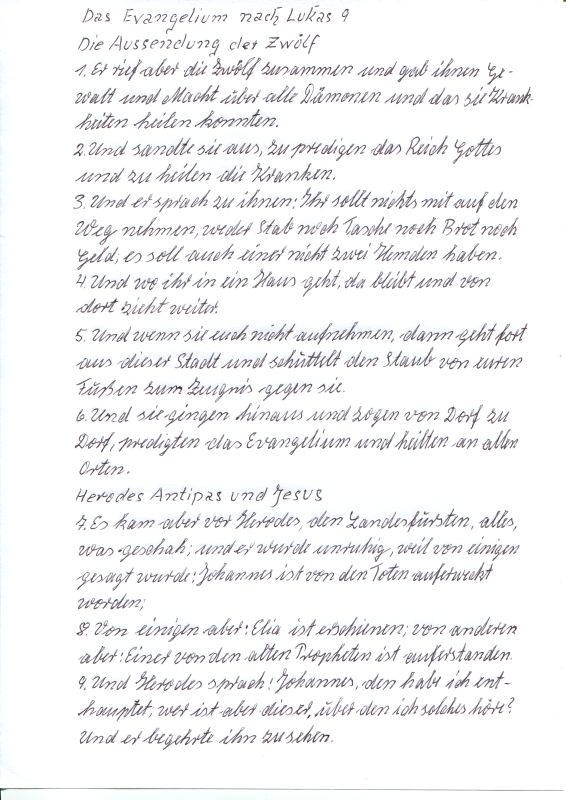 Das Evangelium nach Lukas 9
Die Aussendung der Zwölf
1. Er rief aber die Zwölf zusammen und gab ihnen Ge-
walt und Macht über alle Dämonen und das sie Krank-
heiten heilen konnten.
2. Und sandte sie aus, zu predigen das Reich Gottes
und zu heilen die Kranken.
3. Und er sprach zu ihnen: Ihr sollt nichts mit auf den
Weg nehmen, weder Stab noch Tasche noch Brot noch
Geld; es soll auch einer nicht zwei Hemden haben.
4 Und wo ihr in ein Haus geht, da bleibt und von
dort zieht weiter.
5. Und wenn sie euch nicht aufnehmen, dann geht fort
aus dieser Stadt und schüttelt den Staub von euren
Füßen zum Zeugnis gegen sie.
6. Und sie gingen hinaus und zogen von Dorf zu
Dorf, predigten das Evangelium und heilten an allen
Orten.
Herodes Antipas und Jesus
7. Es kam aber vor Herodes, den Landesfürsten, alles,
was geschah; und er wurde unruhig, weil von einigen
gesagt wurde: Johannes ist von den Toten auferweckt
worden;
8. Von einigen aber: Elia ist erschienen; von anderen
aber: Einer von den alten Propheten ist auferstanden.
9. Und Herodes sprach: Johannes, den habe ich ent-
hauptet, wer ist aber dieser, über den ich solches höre?
Und er begehrte ihn zu sehen.